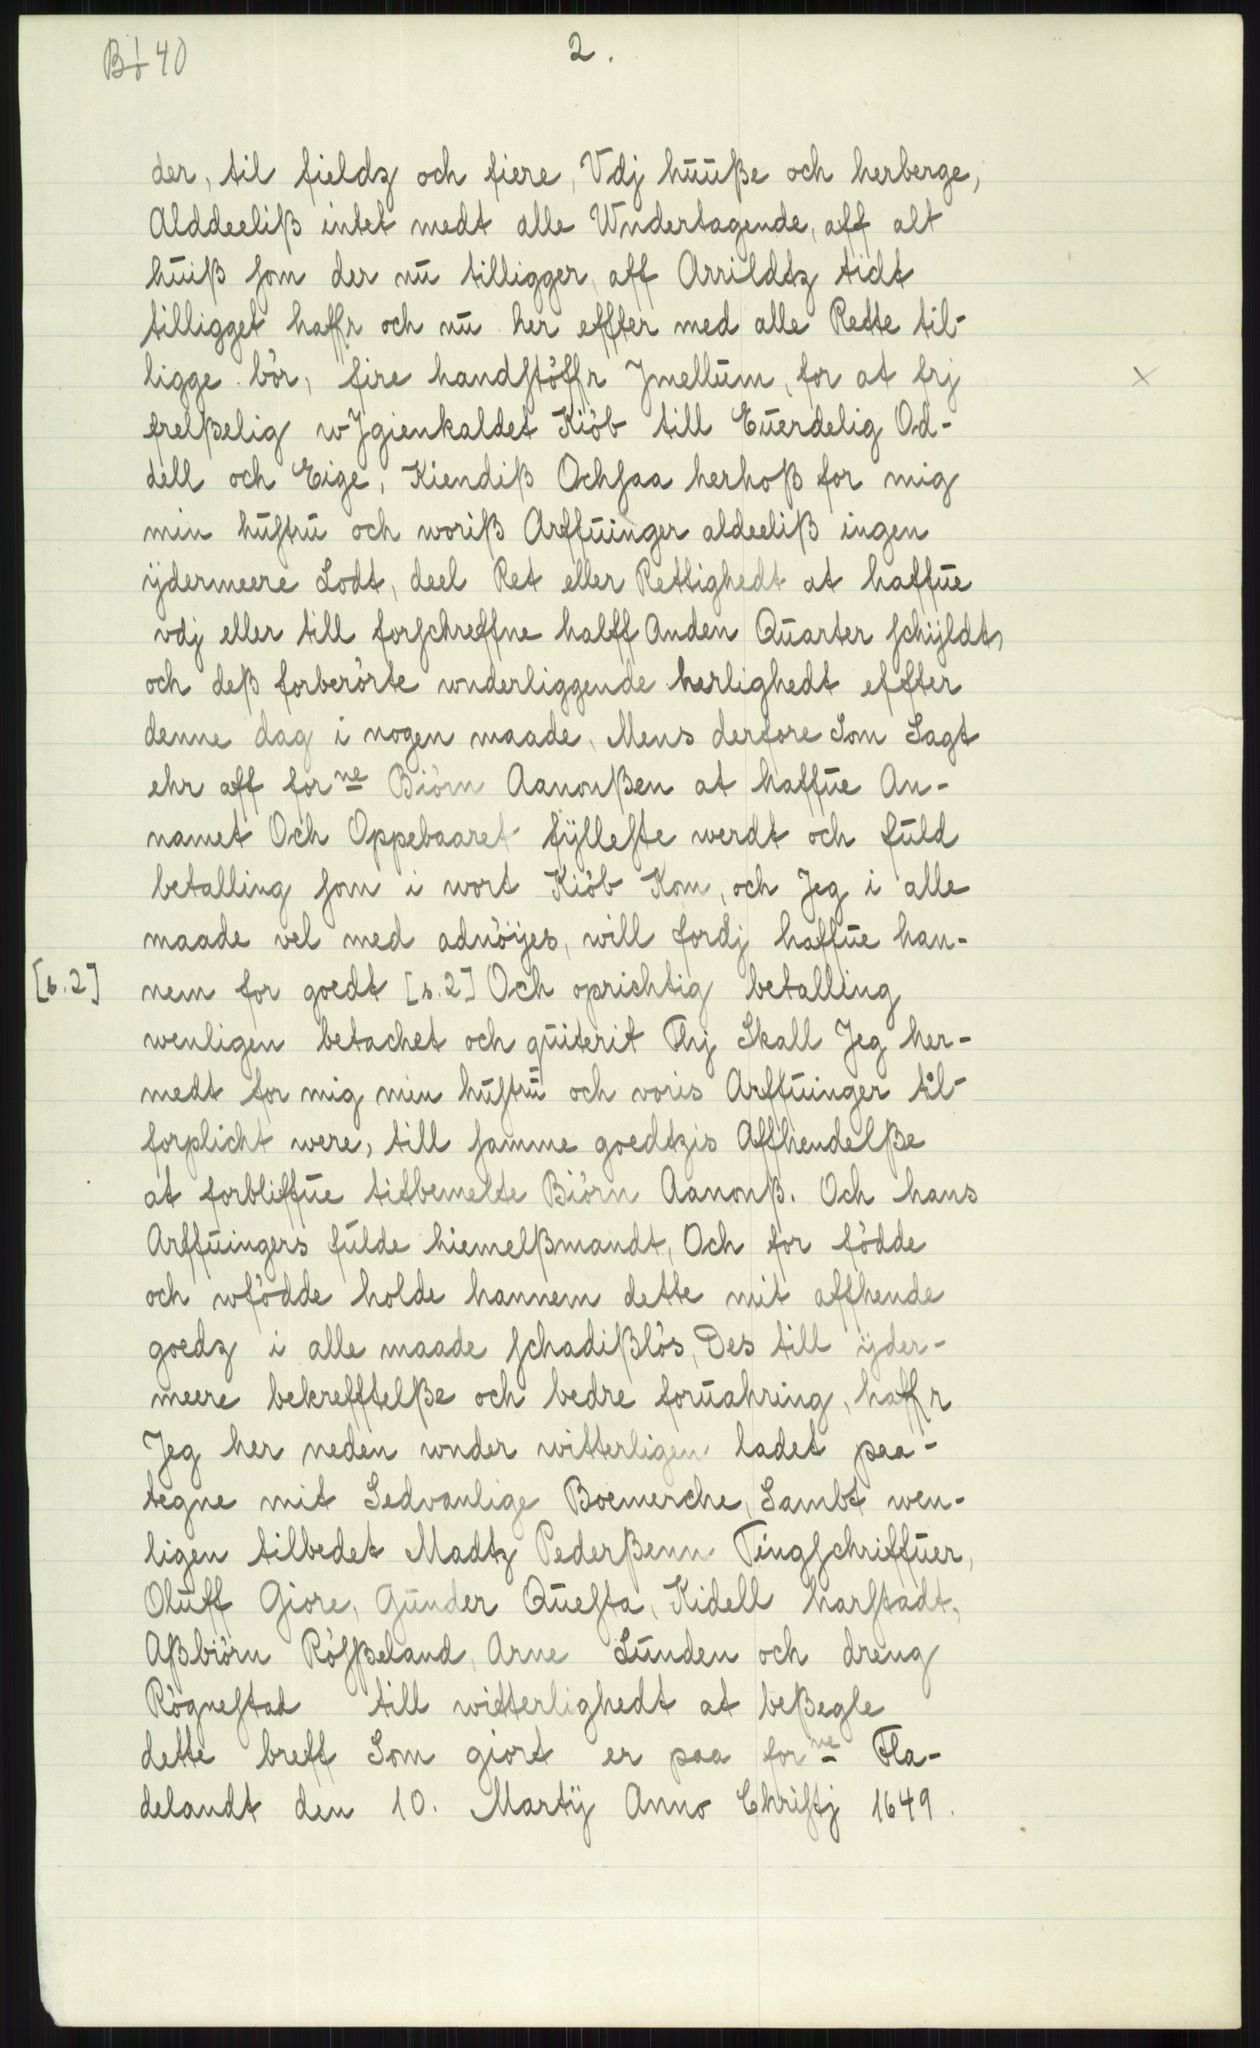 B 40
2.
der, til fieldz och fiere, Vdj huuße och herberge,
Alddeeliß intet medt alle Wndertagende, aff alt
huiß som der nu tilligger, aff Arrildtz tidt
tilligget haffr och nu her effter med alle Rette til-
ligge bör, fire handstöffr Jmellum, for at frj
frelßelig wJgienkaldet Kiöb till Euerdelig Od-
dell och Eige, Kiendiß Ochsaa herhoß for mig
min hustru och woriß Arffuinger aldeeliß ingen
ÿdermeere Lodt, deel Ret eller Rettighedt at haffue
vdj eller till forschreffne halff Anden Quarter schÿldt,
och deß forberörte wnderliggende herlighedt effter
denne dag i nogen maade, Mens derfore Som Sagt
ehr aff forne Biörn Aanonßen at haffue An-
namet Och Oppebaaret fÿlleste werdt och fuld
betalling som i wort Kiöb Kom, och Jeg i alle
maade vel med adnöÿes, will fordj haffue han-
[s.2] nem for goedt [s.2] Och oprichtig betalling
wenligen betachet och quiterit Thj Skall Jeg her-
medt for mig min hustru och voris Arffuinger til-
forplicht were, till samme goedtzis Affhendelße
at forbliffue titbemelte Biörn Aanonß. Och hans
Arffuingers fulde hiemelßmandt, Och for födde
och wfödde holde hannem dette mit affhende
goedz i alle maade schadißlös, Des till ÿder-
meere bekrefftelße och bedre foruahring, haffr
Jeg her neden wnder witterligen ladet paa-
tegne mit Sedvanlige Boemerche, Sambt wen-
ligen tilbedet Madtz Pederßenn Tingschriffuer,
Oluff Giore, Gunder Questa, Kidell harstadt,
Aßbiörn Rößßeland, Arne Lunden och dreng
Rögnestad till witterlighedt at beßegle
dette breff Som giort er paa forne Fla-
delandt den 10. Martÿ Anno Christj 1649.